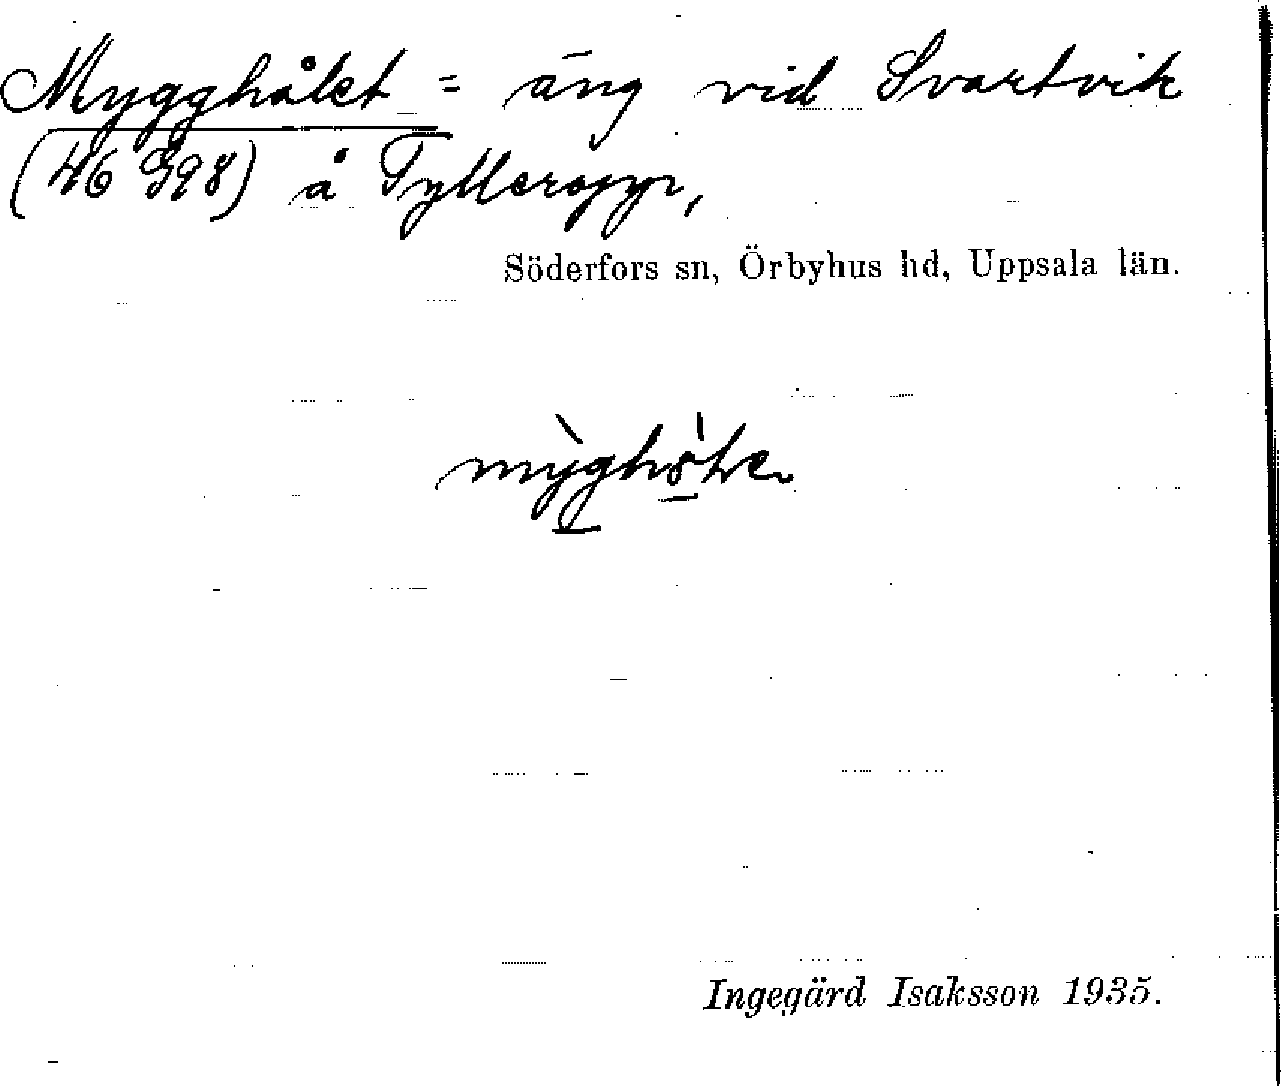 Mygghålet = äng vid Svartvik
(46 998) å Tylleropp,
Söderfors sn, Örbyhus hd, Uppsala län.
Ingegärd Isaksson 1935.